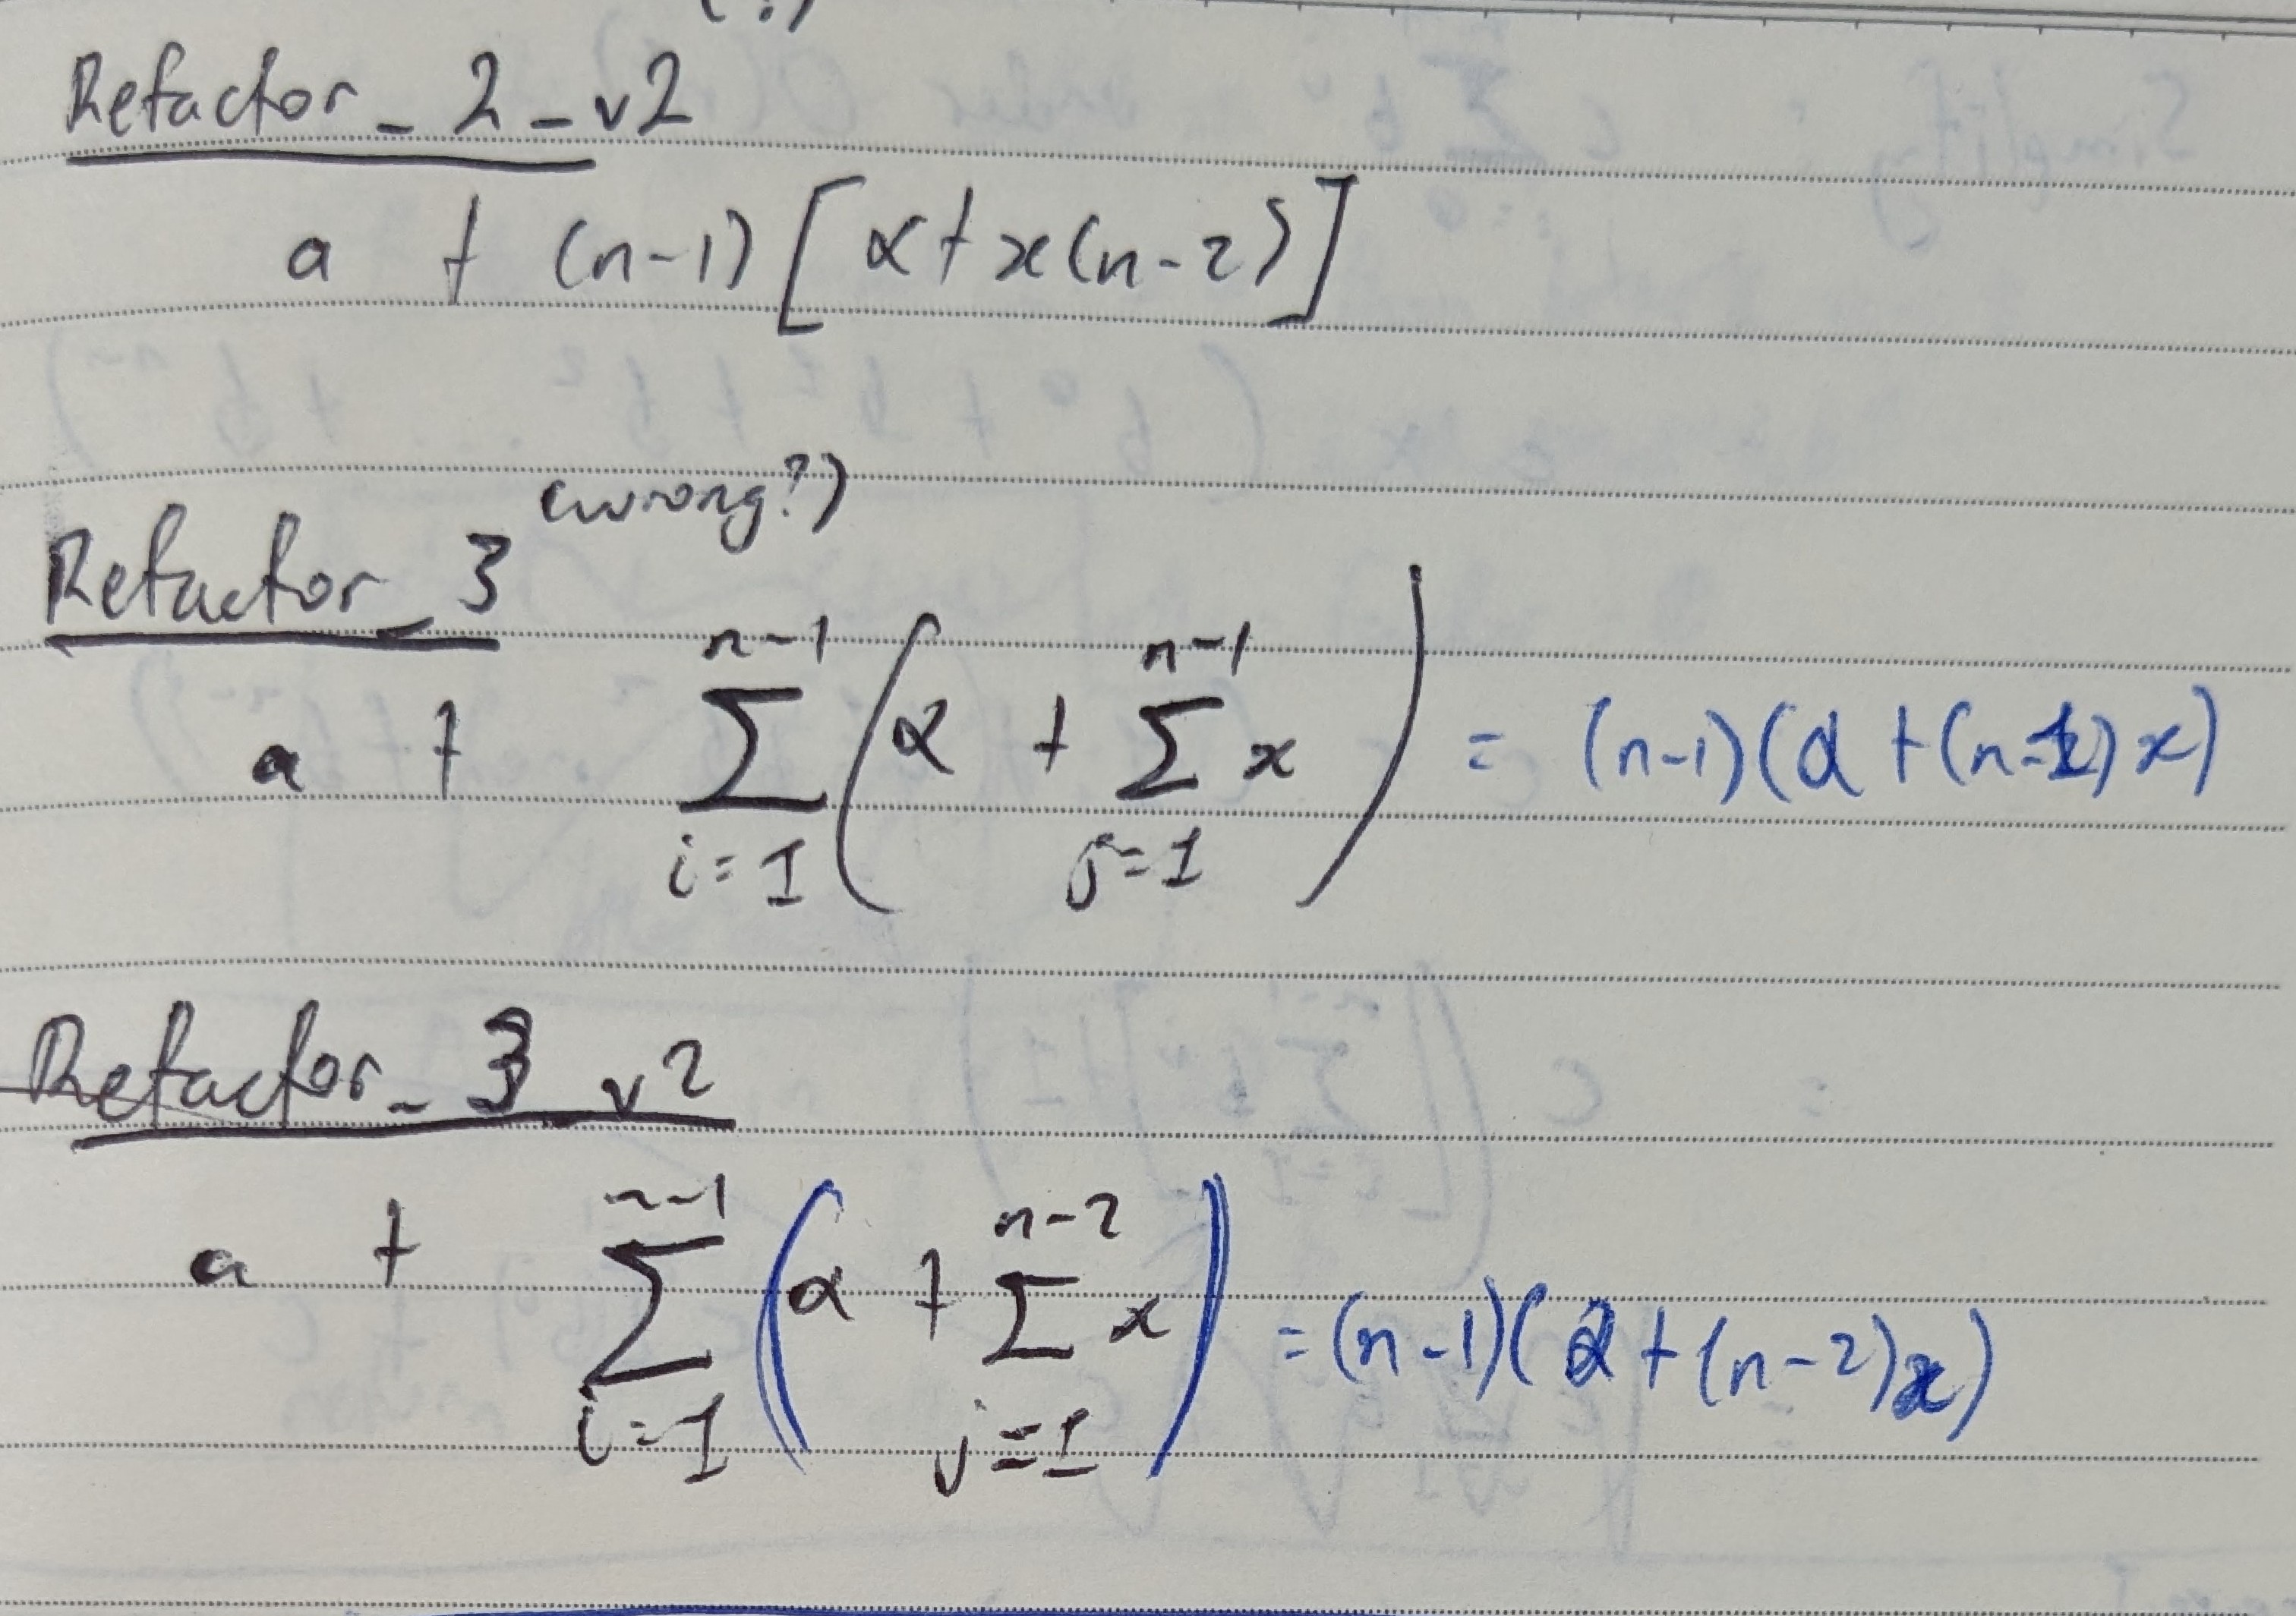 Refactor_2_v2
a + (n-1)[α + x(n-2)]
(wrong?)
Refactor_3
a + \sum_{i=1}^{n-1} (α + \sum_{j=1}^{n-1} x) = (n-1)(α + (n-1)x)
Refactor_3_v2
a + \sum_{i=1}^{n-1} (α + \sum_{j=1}^{n-2} x) = (n-1)(α + (n-2)x)